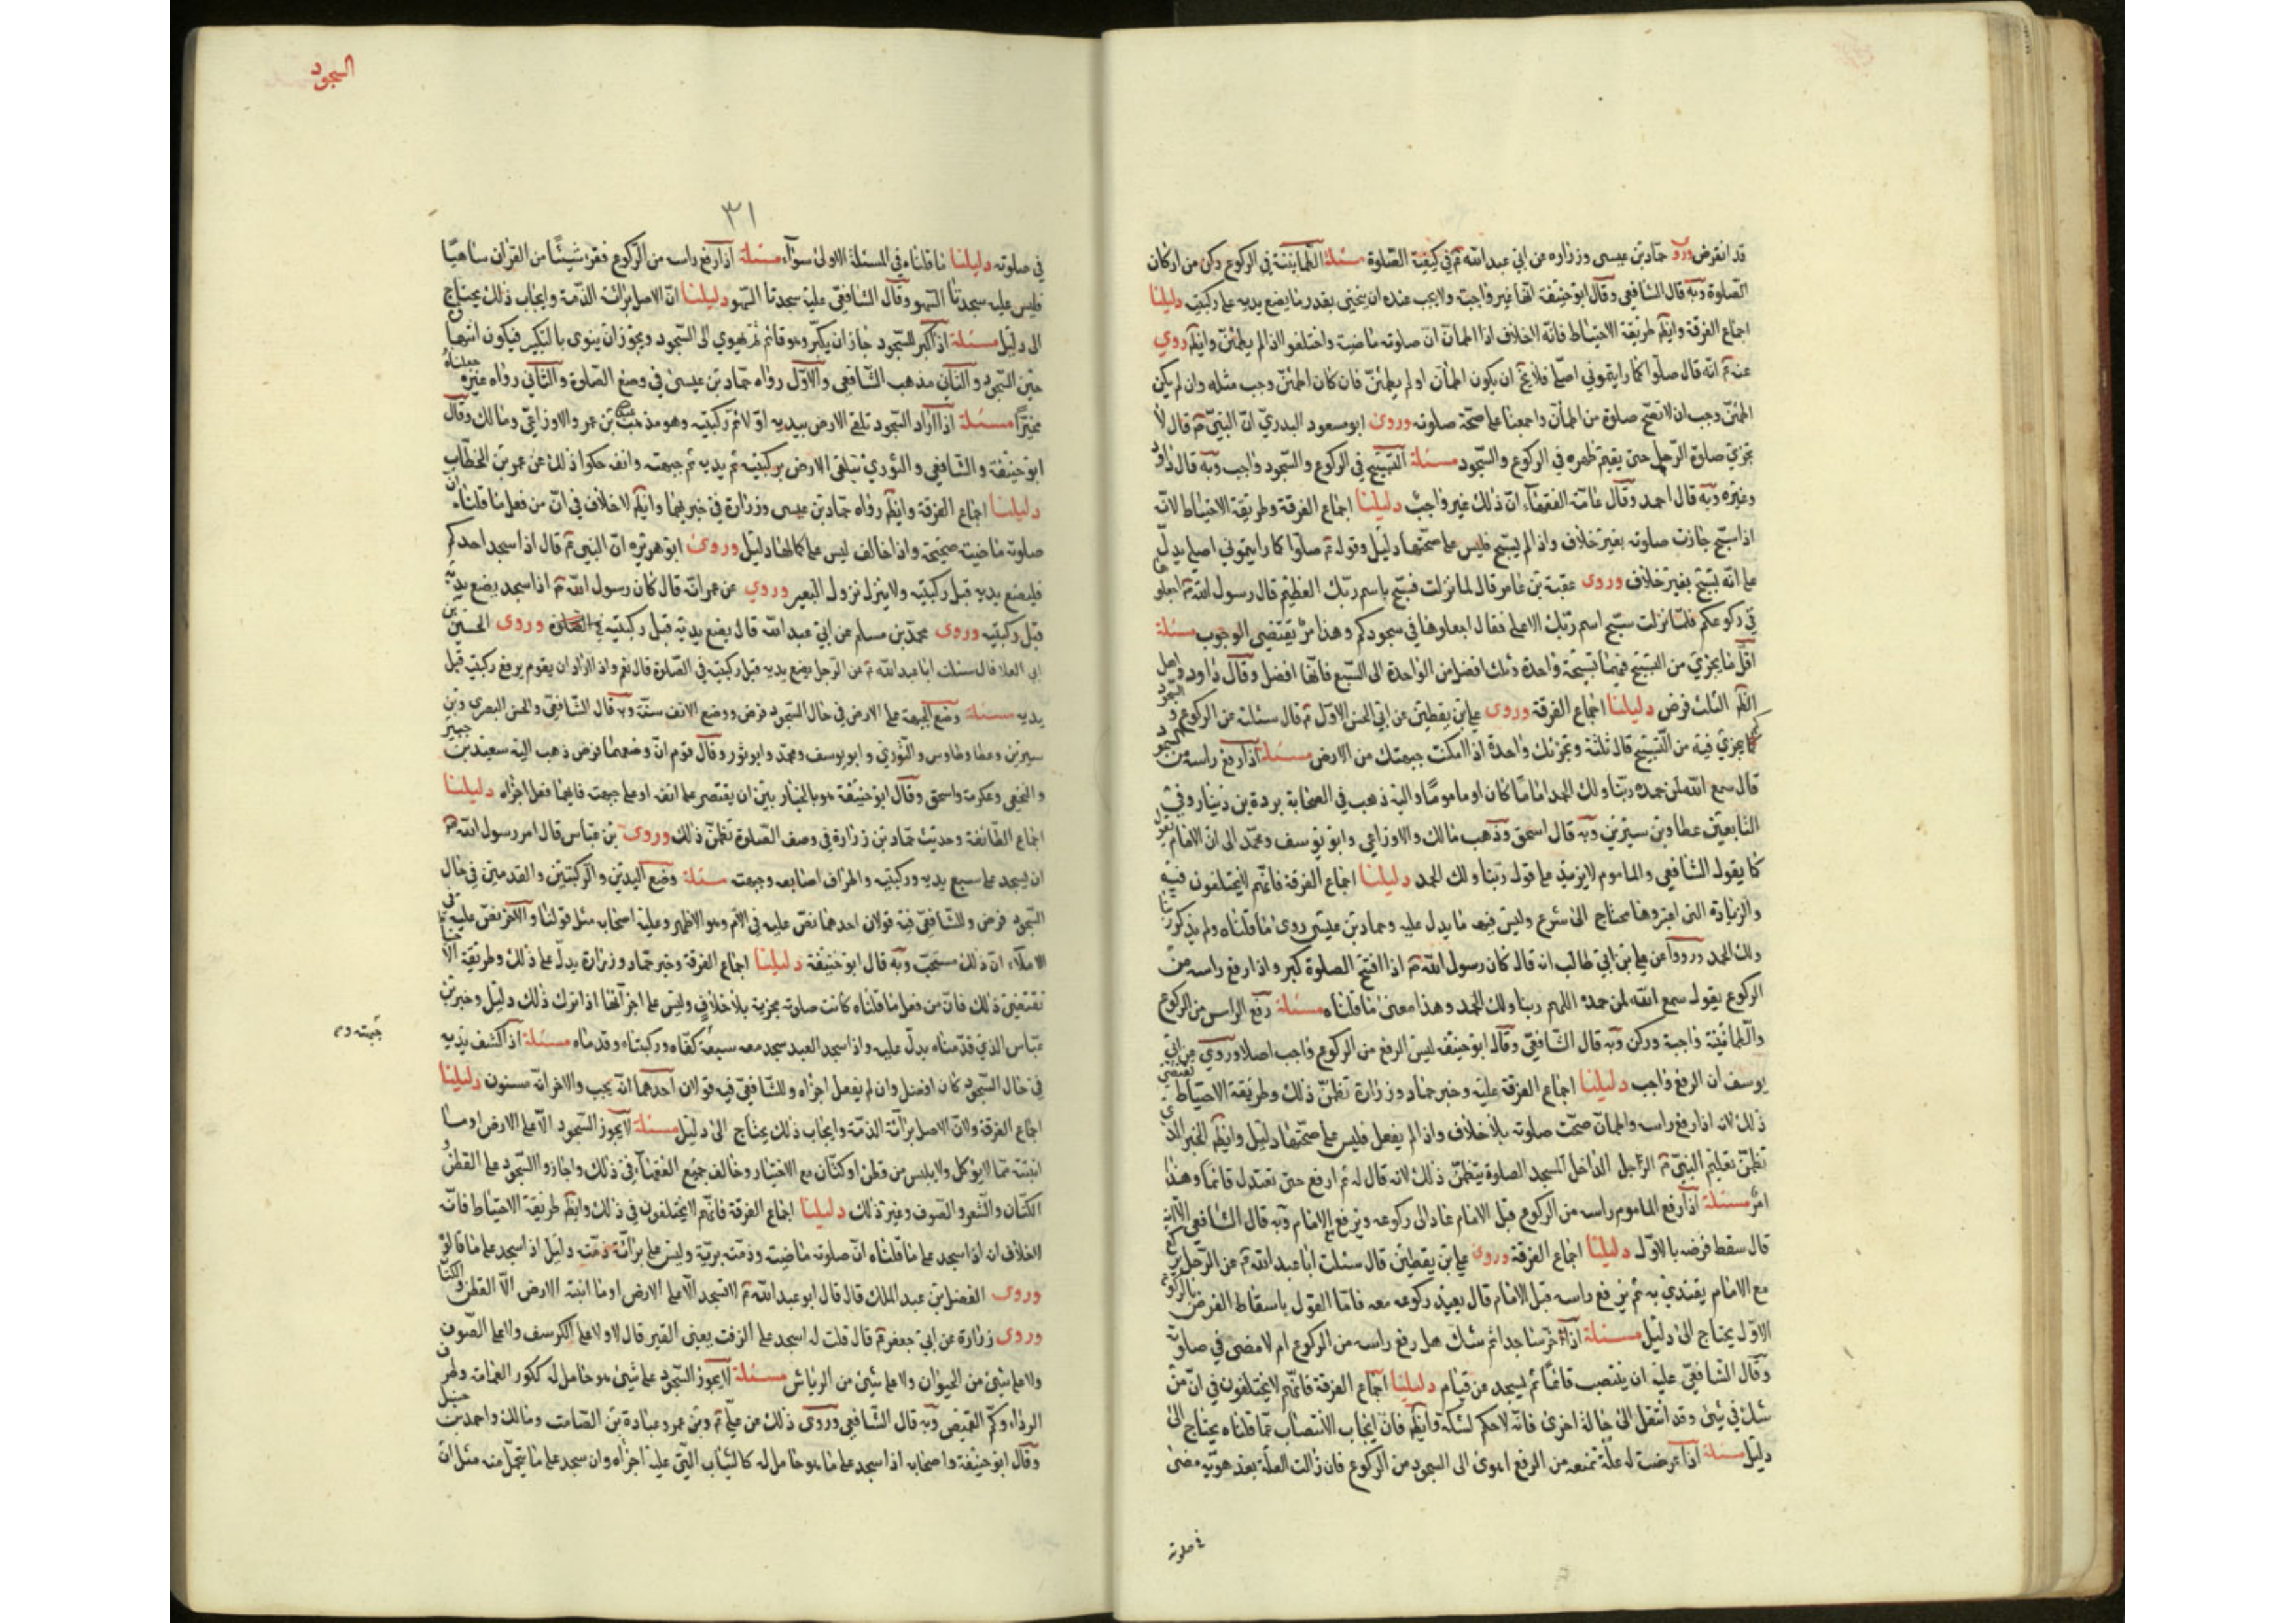 قد انقرض وروى حماد بن عيسى وزراره عن ابي عبد الله ع في كيفية الصلوة مسئلة الطمانينة في الركوع ركن من اركان
الصلوة وبه قال الشافعى وقال ابو حنيفة انها غير واجبة ولا يجب عنده ان ينحنى بقدر ما يضع يديه على ركبتيه دليلنا
اجماع الفرقة وايضا طريقة الاحتياط فانه لاخلاف اذا اطمانّ انّ صلوته ماضية واختلفوا اذا لم يطمئنّ وايضا روي
عنه ع انه قال صلّوا كما رايتموني اصلّى فلا يخ ان يكون اطمأنّ او لم يطمئنّ فان كان اطمئنّ وجب مثله وان لم يكن
اطمئنّ وجب ان لا تصحّ صلوة من اطمأنّ واجمعنا على صحّة صلوته وروى ابو مسعود البدريّ انّ النبيّ ص قال لا
تجزي صلوة الرّجل حتى يقيم ظهره في الركوع والسّجود مسئلة التسبيح في الركوع والسّجود واجب وبه قال داود
وغيره وبه قال احمد وقال عامّة الفقهاء انّ ذلك غير واجب دليلنا اجماع الفرقة وطريقة الاحتياط لانّه
اذا سبّح جازت صلوته بغير خلاف واذا لم يسبّح فليس على صحّتها دليل وقوله ع صلّوا كما رايتموني اصلى يدلّ
على انّه يسبّح بغير خلاف وروى عقبة بن عامر قال لما نزلت فسبّح باسم ربّك العظيم قال رسول الله ص اجعلوها
في ركوعكم فلمّا نزلت سبّح اسم ربّك الاعلى فقال اجعلوها في سجودكم وهذا امرٌ يقتضى الوجوب مسئلة
اقلّ ما يجزي من التسبيح فيهما تسبيحة واحدة وثلث افضل من الواحدة الى السّبع فانّها افضل وقال داود واهل
الظاهر الثلث فرض دليلنا اجماع الفرقة وروى على بن يقطين عن ابي الحسن الاوّل ع قال سئلته عن الركوع والسّجود
كم يجزي فيه من التسبيح قال ثلثة وتجزئك واحدة اذا امكنت جبهتك من الارض مسئلة اذا رفع راسه من الركوع
قال سمع الله لمن حمده ربّنا ولك الحمد اماما كان او ماموما واليه ذهب في الصحابة بردة بن دينار وفي
التابعين عطا وبن سيرين وبه قال اسحق وذهب مالك والاوزاعي وابو يوسف ومحمّد الى ان الامام يقول
كما يقول الشافعى والماموم لا يزيد على قول ربّنا ولك الحمد دليلنا اجماع الفرقة فانّهم لا يختلفون فيه
والزيادة التى اعتبروها محتاج الى شرع وليس فيها ما يدل عليه وحماد بن عيسى روى ما قلناه ولم يذكر ربّنا
ولك الحمد ورووا عن على بن ابي طالب انه قال كان رسول الله ص اذا افتتح الصلوة كبر واذا رفع راسه من
الركوع يقول سمع الله لمن حمده اللهم ربنا ولك الحمد وهذا معنى ما قلناه مسئلة رفع الراس من الركوع
والطمانينة واجبة وركن وبه قال الشافعيّ وقال ابو حنيفه ليس الرفع من الركوع واجب اصلا وروي عن ابي
يوسف ان الرفع واجب دليلنا اجماع الفرقة عليه وخبر حماد وزرارة تضمّن ذلك وطريقة الاحتياط تقتضى
ذلك لانه اذا رفع راسه واطمانّ صحّت صلوته بلا خلاف واذا لم يفعل فليس على صحّتها دليل وايضا الخبر الذى
تضمّن تعليم النبيّ ص الرّجل الداخل المسجد الصلوة يتضمّن ذلك لانه قال له ثم ارفع حتى تعتدل قائما وهذا
امرٌ مسئلة اذا رفع الماموم راسه من الركوع قبل الامام عاد الى ركوعه ويرفع مع الامام وبه قال الشافعى الا انه
قال سقط فرضه بالاوّل دليلنا اجماع الفرقة وروى على بن يقطين قال سئلت ابا عبد الله ع عن الرّجل يركع
مع الامام يقتدي به ثم يرفع راسه قبل الامام قال يعيد ركوعه معه فامّا القول باسقاط الفرض بالركوع
الاوّل يحتاج الى دليل مسئلة اذا خرّ ساجدا ثم شك هل رفع راسه من الركوع ام لا مضى في صلوته
وقال الشافعيّ عليه ان ينتصب قائمًا ثم ليسجد عن قيام دليلنا اجماع الفرقة فانّهم لا يختلفون في انّ من
شك في شئ وقد انتقل الى حالة اخرى فانّه لا حكم لشكه وايضا فان ايجاب الانتصاب عمّا قلناه يحتاج الى
دليل مسئلة اذا عرضت له علّة تمنعه من الرفع اهوى الى السجود من الركوع فان زالت العلّة بعد هويّه مضى
في صلوته
السجود
٣١
في صلوته دليلنا ما قلناه في المسئلة الاولى سوآء مسئلة اذا رفع راسه من الرّكوع فقرء شيئًا من القران ساهيًا
فليس عليه سجدتا السّهو وقال الشافعىّ عليه سجدتا السّهو دليلنا انّ الاصل برائة الذمّة وايجاب ذلك يحتاج
الى دليل مسئلة اذا كبر للسّجود جاز ان يكبّر وهو قائم ثم يهوي الى السّجود ويجوز ان ينوى بالتكبير فيكون انتهاؤه
حين السّجود والثاني مذهب الشّافعى والاوّل رواه حمّاد بن عيسى في وصف الصّلوة والثّاني رواه غيره جعلناه
مخيّرًا مسئلة اذا اراد السّجود تلقى الارض بيديه اوّلا ثم ركبتيه وهو مذهب بن عمر والاوزاعيّ ومالك وقال
ابو حنيفة والشّافعى والثوريّ يتلقى الارض بركبتيه ثم يديه ثم جبهته وانفه حكوا ذلك عن عمر بن الخطّاب
دليلنا اجماع الفرقة وايضا رواه حمّاد بن عيسى وزرارة في خبريهما وايضا لا خلاف في انّ من فعل ما قلناه انّ
صلوته ماضية صحيحة واذا خالف ليس على كمالها دليل وروى ابو هريره انّ النبى ص قال اذا سجد احدكم
فليضع يديه قبل ركبتيه ولا ينزل نزول البعير وروي عن عمر انّه قال كان رسول الله ص اذا سجد يضع يديه
قبل ركبتيه وروى محمّد بن مسلم عن ابي عبد الله قال يضع يديه قبل ركبتيه في الصلوة وروى الحسين بن
ابي العلا قال سئلت ابا عبد الله ع عن الرّجل يضع يديه قبل ركبتيه في الصّلوة قال نعم واذا اراد ان يقوم يرفع ركبتيه قبل
يديه مسئلة وضع الجبهة على الارض في حال السّجود فرض ووضع الانف سنّة وبه قال الشّافعىّ والحسن البصرى وبن
سيرين وعطا وطاوس والثّوري وابو يوسف ومحمّد وابو ثور وقال قوم انّ وضعهما فرض ذهب اليه سعيد بن جبير
والنخعى وعكرمة واسحق وقال ابو حنيفة هو بالخيار بين ان يقتصر على انفه او على جبهته فايهما فعل اجزاه دليلنا
اجماع الطّائفة وحديث حمّاد بن زرارة في وصف الصّلوة تضمّن ذلك وروى بن عبّاس قال امر رسول الله ص
ان يسجد على سبع يديه وركبتيه واطراف اصابعه وجبهته مسئلة وضع اليدين والركبتين والقدمين في حال
السّجود فرض وللشّافعىّ فيه قولان احدهما نصّ عليه في الامّ وهو الاظهر وعليه اصحابه مثل قولنا والآخر نصّ عليه في
الاملاء انّ ذلك مستحبّ وبه قال ابو حنيفة دليلنا اجماع الفرقة وخبر حمّاد وزرارة يدلّ على ذلك وطريقة الاحتياط
تقتضى ذلك فانّ من فعل ما قلناه كانت صلوته مجزية بلا خلاف وليس على اجزآئها اذا ترك ذلك دليل وخبر بن
عبّاس الذي قدّمناه يدلّ عليه واذا سجد العبد سجد معه سبعة كفّاه وركبتاه وقدماه مسئلة اذا كشف يديه
جبهته و
في حال السّجود كان افضل وان لم يفعل اجزاه وللشّافعىّ فيه قولان احدهما انّه يجب والاخر انّه مسنون دليلنا
اجماع الفرقة ولانّ الاصل برآئة الذمّة وايجاب ذلك يحتاج الى دليل مسئلة لا يجوز السّجود الّا على الارض او ما
انبتته ممّا لا يؤكل ولا يلبس من قطن او كتّان مع الاختيار وخالف جميع الفقهاء في ذلك واجازوا السّجود على القطن و
الكتّان والشّعر والصّوف وغير ذلك دليلنا اجماع الفرقة فانّهم لا يختلفون في ذلك وايضا طريقة الاحتياط فانّه
لاخلاف انه اذا سجد على ما قلناه انّ صلوته ماضية وذمّته بريّة وليس على برائة ذمّته دليل اذا سجد على ما قالوه
وروى الفضل بن عبد الملك قال قال ابو عبد الله ع لا تسجد الّا على الارض او ما انبتته الارض الّا القطن والكتّان
وروى زرارة عن ابي جعفر ع قال قلت له اسجد على الزفت يعنى القير قال لا ولا على الكرسف ولا على الصّوف
ولا على شئ من الحيوان ولا على شئ من الرياش مسئلة لا يجوز السّجود على شئ هو حامل له ككور العمامة وطرف
الرداء وكمّ القميص وبه قال الشّافعى وروى ذلك عن علىّ ع وبن عمر وعبادة بن الصّامت ومالك واحمد بن حنبل
وقال ابو حنيفة واصحابه اذا سجد على ما هو حامل له كالثياب الّتى عليه اجزاه وان سجد على ما يتحمّل منه مثل ان